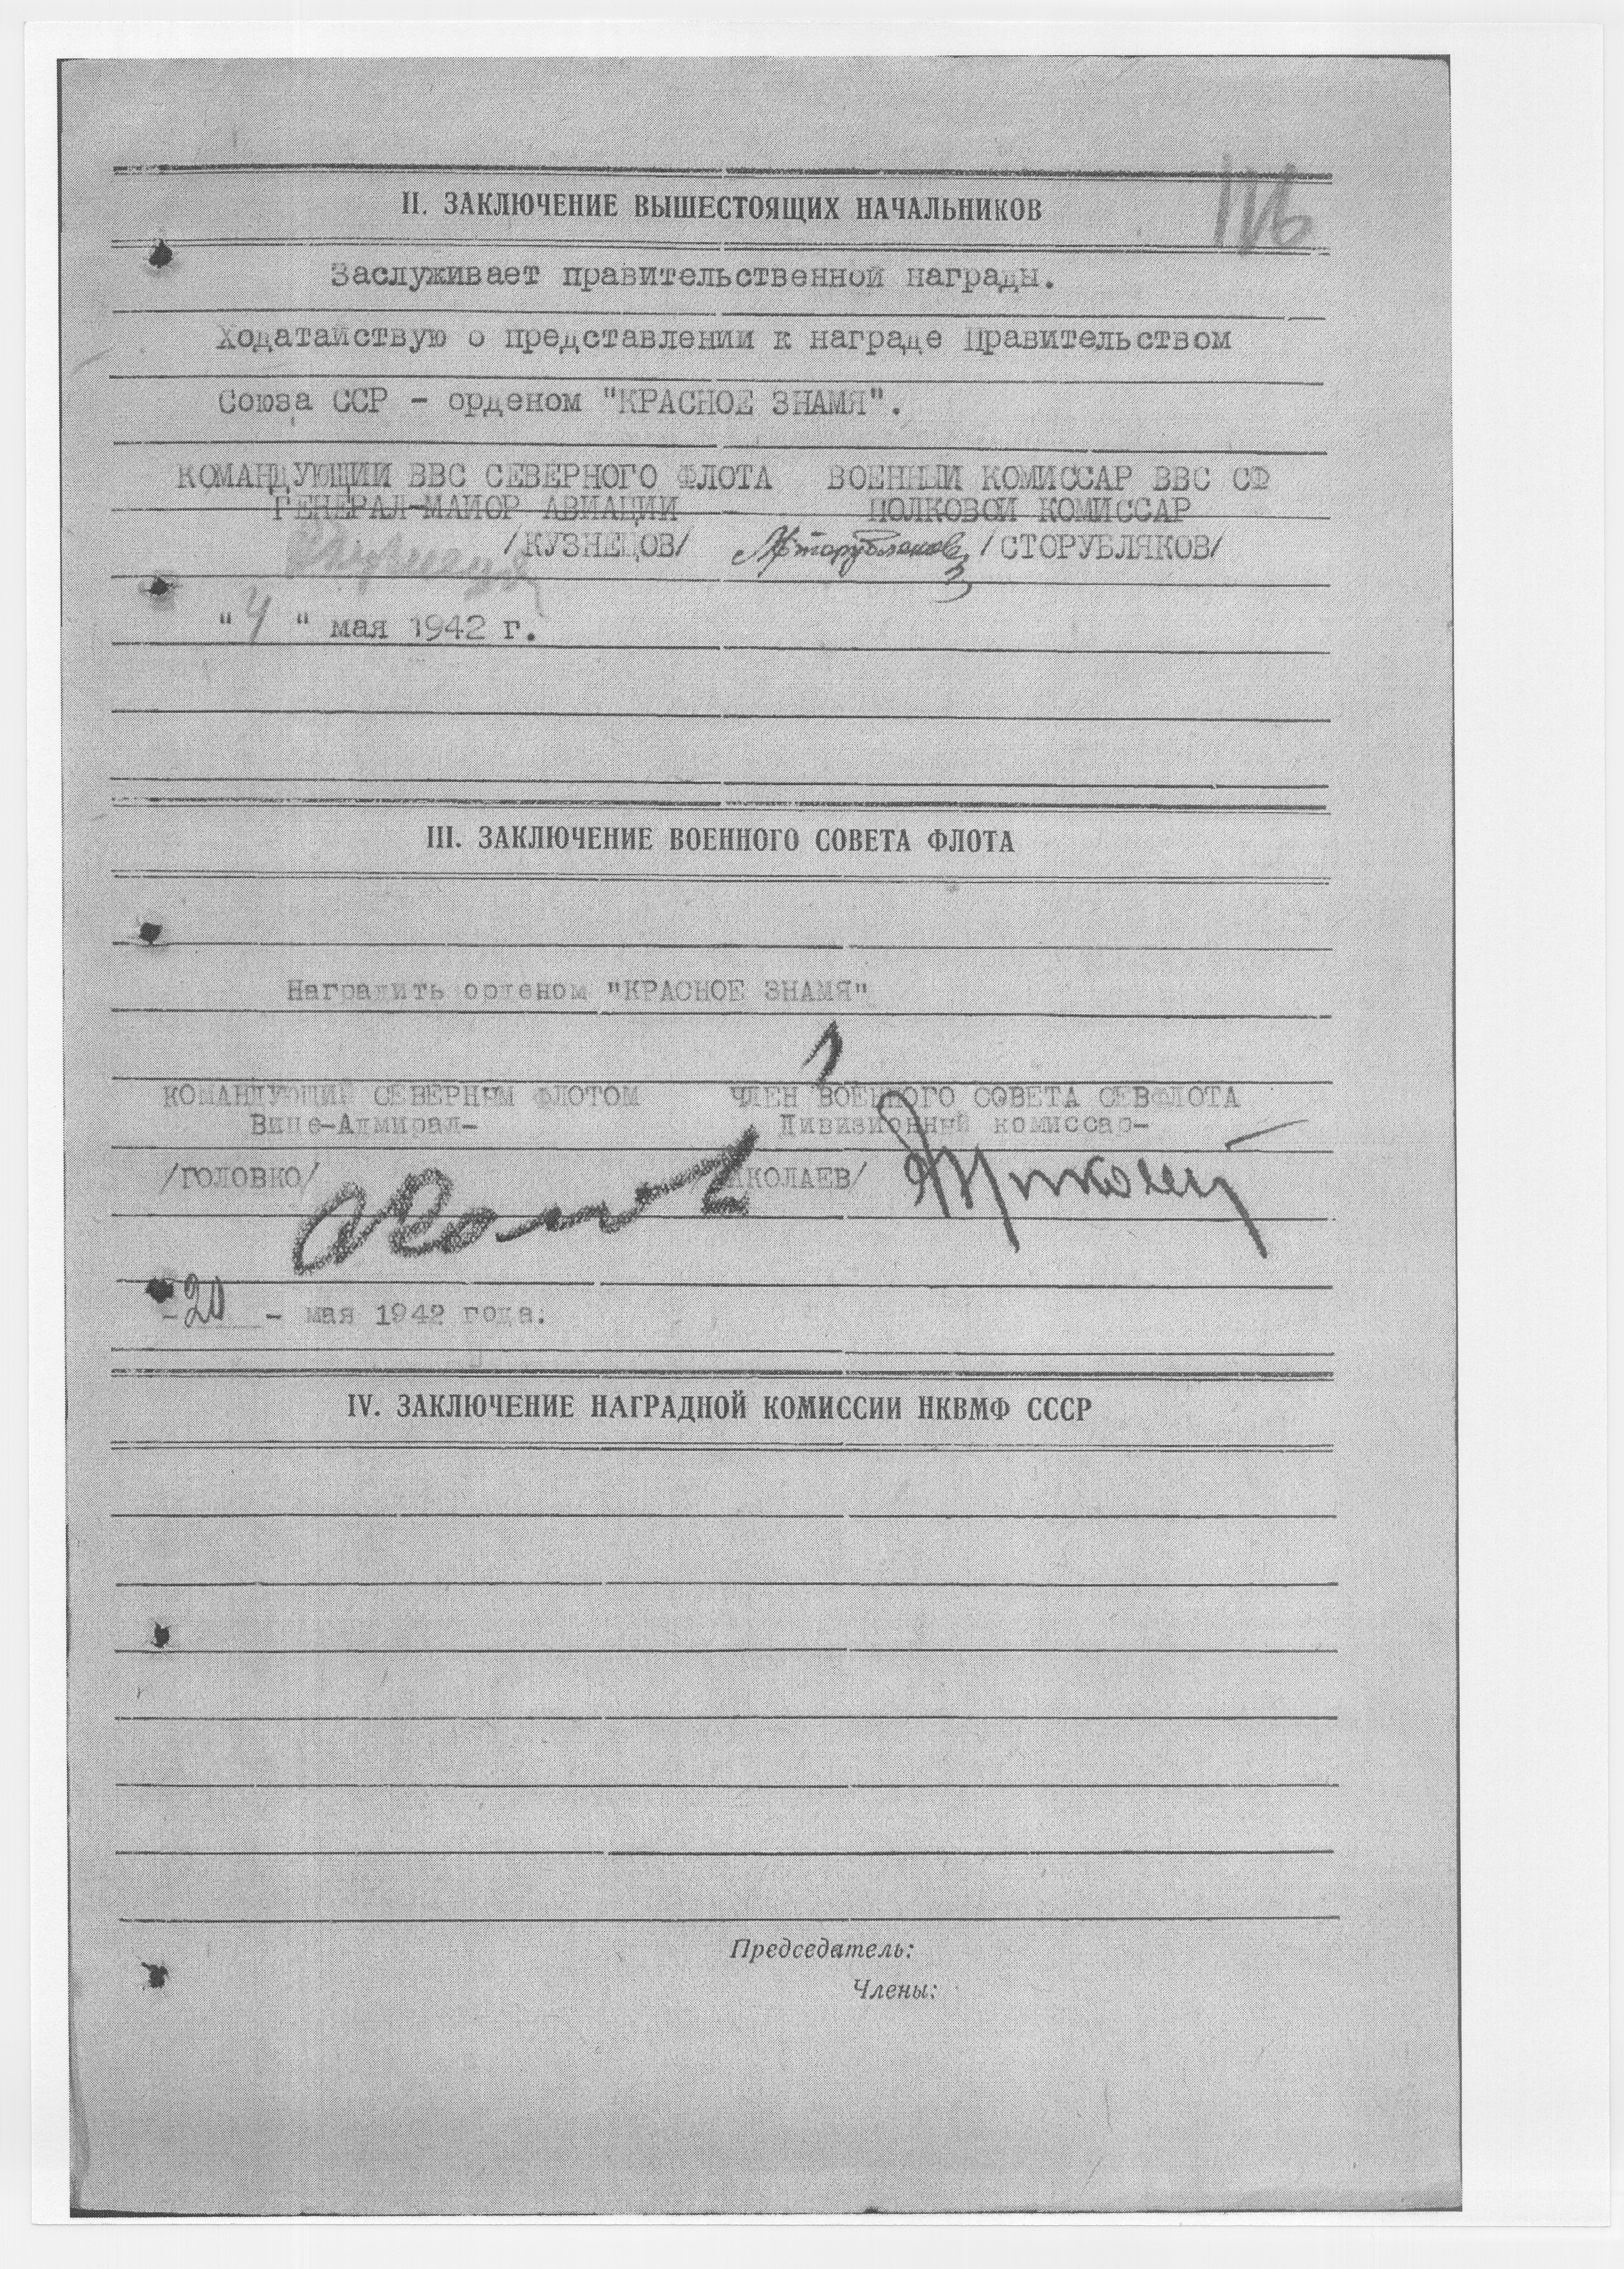 II. ЗАКЛЮЧЕНИЕ ВЫШЕСТОЯЩИХ НАЧАЛЬНИКОВ
Заслуживает правительственной награды.
Ходатайствую о представлении к награде Правительством
Союза ССР - орденом "КРАСНОЕ ЗНАМЯ".
КОМАНДУЮЩИЙ ВВС СЕВЕРНОГО ФЛОТА ВОЕННЫЙ КОМИССАР ВВС СФ
ГЕНЕРАЛ-МАЙОР АВИАЦИИ ПОЛКОВОЙ КОМИССАР
/КУЗНЕЦОВ/ /СТОРУБЛЯКОВ/
"4" мая 1942 г.
III. ЗАКЛЮЧЕНИЕ ВОЕННОГО СОВЕТА ФЛОТА
Наградить орденом "КРАСНОЕ ЗНАМЯ"
КОМАНДУЮЩИЙ СЕВЕРНЫМ ФЛОТОМ ЧЛЕН ВОЕННОГО СОВЕТА СЕВФЛОТА
Вице-Адмирал- Дивизионный комиссар-
/ГОЛОВКО/ НИКОЛАЕВ/
-20- мая 1942 года.
IV. ЗАКЛЮЧЕНИЕ НАГРАДНОЙ КОМИССИИ НКВМФ СССР
Председатель:
Члены: